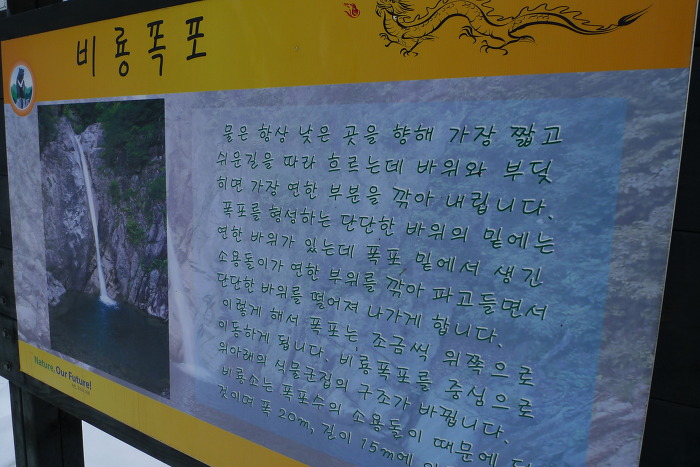 비룡폭포
물은 항상 낮은 곳을 향해 가장 짧고
쉬운길을 따라 흐르는데 바위와 부딪
히면 가장 연한 부분을 깎아 내립니다.
폭포를 형성하는 단단한 바위의 밑에는
연한 바위가 있는데 폭포 밑에서 생긴
소용돌이가 연한 부위를 깎아 파고들면서
단단한 바위를 떨어져 나가게 합니다.
이렇게 해서 폭포는 조금씩 위쪽으로
이동하게 됩니다. 비룡폭포를 중심으로
위아래의 식물군집의 구조가 바뀝니다.
비룡소는 폭포수의 소용돌이 때문에
것이며 폭 20m, 길이 15m에
Nature, Our Future!